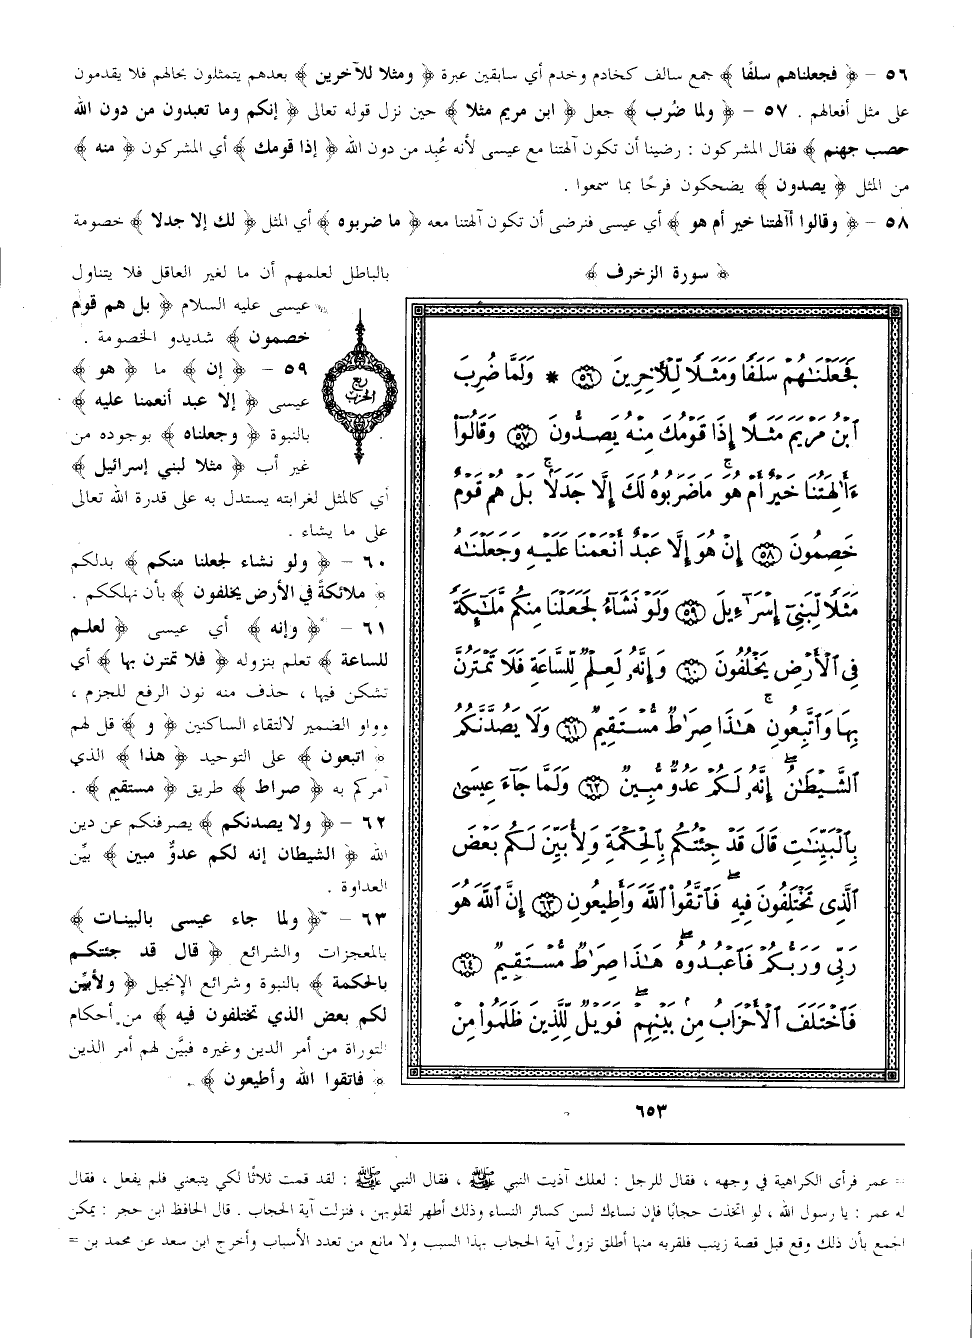 ٥٦ – ﴿ فجعلناهم سلفًا ﴾ جمع سالف كخادم وخدم أي سابقين عبرة ﴿ ومثلا للآخرين ﴾ بعدهم يتمثلون بحالهم فلا يقدمون
على مثل أفعالهم . ٥٧ – ﴿ ولما ضُرب ﴾ جعل ﴿ ابن مريم مثلا ﴾ حين نزل قوله تعالى ﴿ إنكم وما تعبدون من دون الله
حصب جهنم ﴾ فقال المشركون : رضينا أن تكون آلهتنا مع عيسى لأنه عُبد من دون الله ﴿ إذا قومك ﴾ أي المشركون ﴿ منه ﴾
من المثل ﴿ يصدون ﴾ يضحكون فرحًا بما سمعوا .
٥٨ – ﴿ وقالوا أآلهتنا خير أم هو ﴾ أي عيسى فنرضى أن تكون آلهتنا معه ﴿ ما ضربوه ﴾ أي المثل ﴿ لك إلا جدلا ﴾ خصومة
﴿ سورة الزخرف ﴾
بالباطل لعلمهم أن ما لغير العاقل فلا يتناول
عيسى عليه السلام ﴿ بل هم قوم
خصمون ﴾ شديدو الخصومة .
٥٩ – ﴿ إن ﴾ ما ﴿ هو ﴾
عيسى ﴿ إلا عبد أنعمنا عليه ﴾
بالنبوة ﴿ وجعلناه ﴾ بوجوده من
غير أب ﴿ مثلا لبني إسرائيل ﴾
أي كالمثل لغرابته يستدل به على قدرة الله تعالى
على ما يشاء .
٦٠ – ﴿ ولو نشاء لجعلنا منكم ﴾ بدلكم
﴿ ملائكةً في الأرض يخلفون ﴾ بأن نهلككم .
٦١ – ﴿ وإنه ﴾ أي عيسى ﴿ لعلم
للساعة ﴾ تعلم بنزوله ﴿ فلا تمترن بها ﴾ أي
تشكن فيها ، حذف منه نون الرفع للجزم ،
وواو الضمير لالتقاء الساكنين ﴿ و ﴾ قل لهم
﴿ اتبعون ﴾ على التوحيد ﴿ هذا ﴾ الذي
آمركم به ﴿ صراط ﴾ طريق ﴿ مستقيم ﴾ .
٦٢ – ﴿ ولا يصدنكم ﴾ يصرفنكم عن دين
الله ﴿ الشيطان إنه لكم عدوٌّ مبين ﴾ بيِّن
العداوة .
٦٣ – ﴿ ولما جاء عيسى بالبينات ﴾
بالمعجزات والشرائع ﴿ قال قد جئتكم
بالحكمة ﴾ بالنبوة وشرائع الإنجيل ﴿ ولأبيِّن
لكم بعض الذي تختلفون فيه ﴾ من أحكام
التوراة من أمر الدين وغيره فبيَّن لهم أمر الدين
﴿ فاتقوا الله وأطيعون ﴾ .
ربع
الحزب
فَجَعَلْنَٰهُمْ سَلَفًا وَمَثَلًا لِّلْآخِرِينَ ﴿٥٦﴾ * وَلَمَّا ضُرِبَ
ٱبْنُ مَرْيَمَ مَثَلًا إِذَا قَوْمُكَ مِنْهُ يَصِدُّونَ ﴿٥٧﴾ وَقَالُوٓا۟
ءَأَٰلِهَتُنَا خَيْرٌ أَمْ هُوَ ۚ مَا ضَرَبُوهُ لَكَ إِلَّا جَدَلًۢا ۚ بَلْ هُمْ قَوْمٌ
خَصِمُونَ ﴿٥٨﴾ إِنْ هُوَ إِلَّا عَبْدٌ أَنْعَمْنَا عَلَيْهِ وَجَعَلْنَٰهُ
مَثَلًا لِّبَنِىٓ إِسْرَٰٓءِيلَ ﴿٥٩﴾ وَلَوْ نَشَآءُ لَجَعَلْنَا مِنكُم مَّلَٰٓئِكَةً
فِى ٱلْأَرْضِ يَخْلُفُونَ ﴿٦٠﴾ وَإِنَّهُۥ لَعِلْمٌ لِّلسَّاعَةِ فَلَا تَمْتَرُنَّ
بِهَا وَٱتَّبِعُونِ ۚ هَٰذَا صِرَٰطٌ مُّسْتَقِيمٌ ﴿٦١﴾ وَلَا يَصُدَّنَّكُمُ
ٱلشَّيْطَٰنُ ۖ إِنَّهُۥ لَكُمْ عَدُوٌّ مُّبِينٌ ﴿٦٢﴾ وَلَمَّا جَآءَ عِيسَىٰ
بِٱلْبَيِّنَٰتِ قَالَ قَدْ جِئْتُكُم بِٱلْحِكْمَةِ وَلِأُبَيِّنَ لَكُم بَعْضَ
ٱلَّذِى تَخْتَلِفُونَ فِيهِ ۖ فَٱتَّقُوا۟ ٱللَّهَ وَأَطِيعُونِ ﴿٦٣﴾ إِنَّ ٱللَّهَ هُوَ
رَبِّى وَرَبُّكُمْ فَٱعْبُدُوهُ ۚ هَٰذَا صِرَٰطٌ مُّسْتَقِيمٌ ﴿٦٤﴾
فَٱخْتَلَفَ ٱلْأَحْزَابُ مِنۢ بَيْنِهِمْ ۖ فَوَيْلٌ لِّلَّذِينَ ظَلَمُوا۟ مِنْ
٦٥٣
= عمر فرأى الكراهية في وجهه ، فقال للرجل : لعلك آذيت النبي ﷺ ، فقال النبي ﷺ : لقد قمت ثلاثًا لكي يتبعني فلم يفعل ، فقال
له عمر : يا رسول الله ، لو اتخذت حجابًا فإن نساءك لسن كسائر النساء وذلك أطهر لقلوبهن ، فنزلت آية الحجاب . قال الحافظ ابن حجر : يمكن
الجمع بأن ذلك وقع قبل قصة زينب فلقربه منها أطلق نزول آية الحجاب بهذا السبب ولا مانع من تعدد الأسباب وأخرج ابن سعد عن محمد بن =